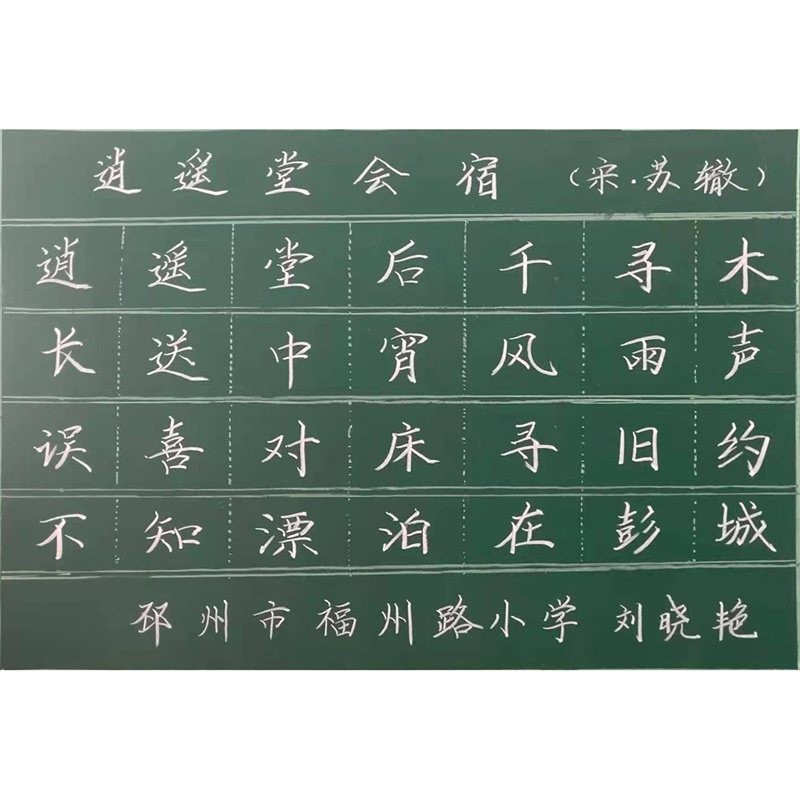 逍遥堂会宿（宋·苏辙）
逍遥堂后千寻木
长送中宵风雨声
误喜对床寻旧约
不知漂泊在彭城
邳州市福州路小学 刘晓艳